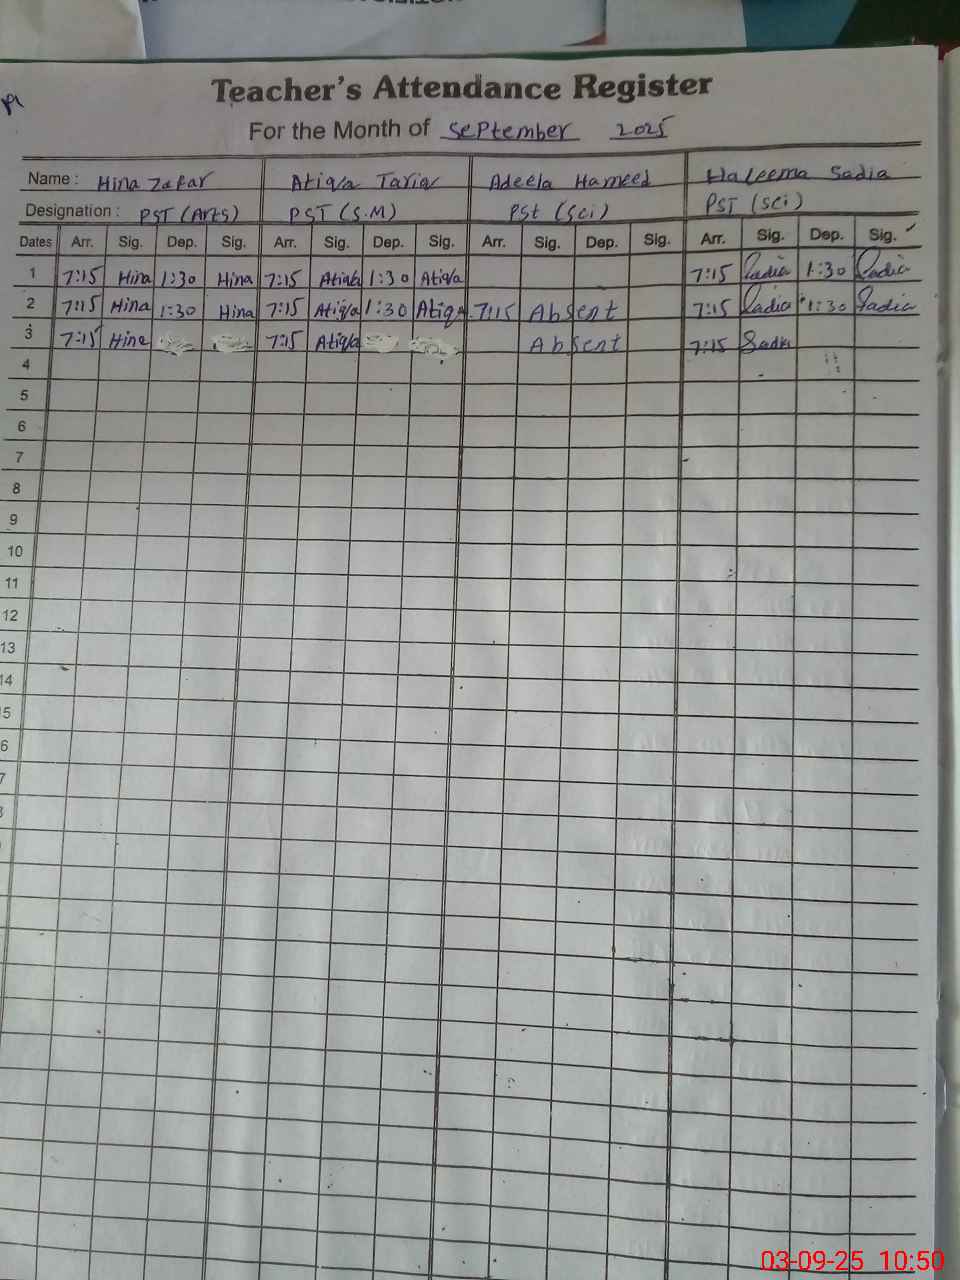 Teacher's Attendance Register
For the Month of September 2025
Name : Hina Zafar Atiqa Tariq Adeela Hameed Haleema Sadia
Designation : PST (Arts) PST (S.M) PSt (Sci) PST (Sci)
Dates Arr. Sig. Dep. Sig. Arr. Sig. Dep. Sig. Arr. Sig. Dep. Sig. Arr. Sig. Dep. Sig.
1 7:15 Hina 1:30 Hina 7:15 Atiqa 1:30 Atiqa 7:15 Sadia 1:30 Sadia
2 7:15 Hina 1:30 Hina 7:15 Atiqa 1:30 Atiqa 7:15 Absent 7:15 Sadia 1:30 Sadia
3 7:15 Hina 7:15 Atiqa Absent 7:15 Sadia
4
5
6
7
8
9
10
11
12
13
14
5
6
7
03-09-25 10:50